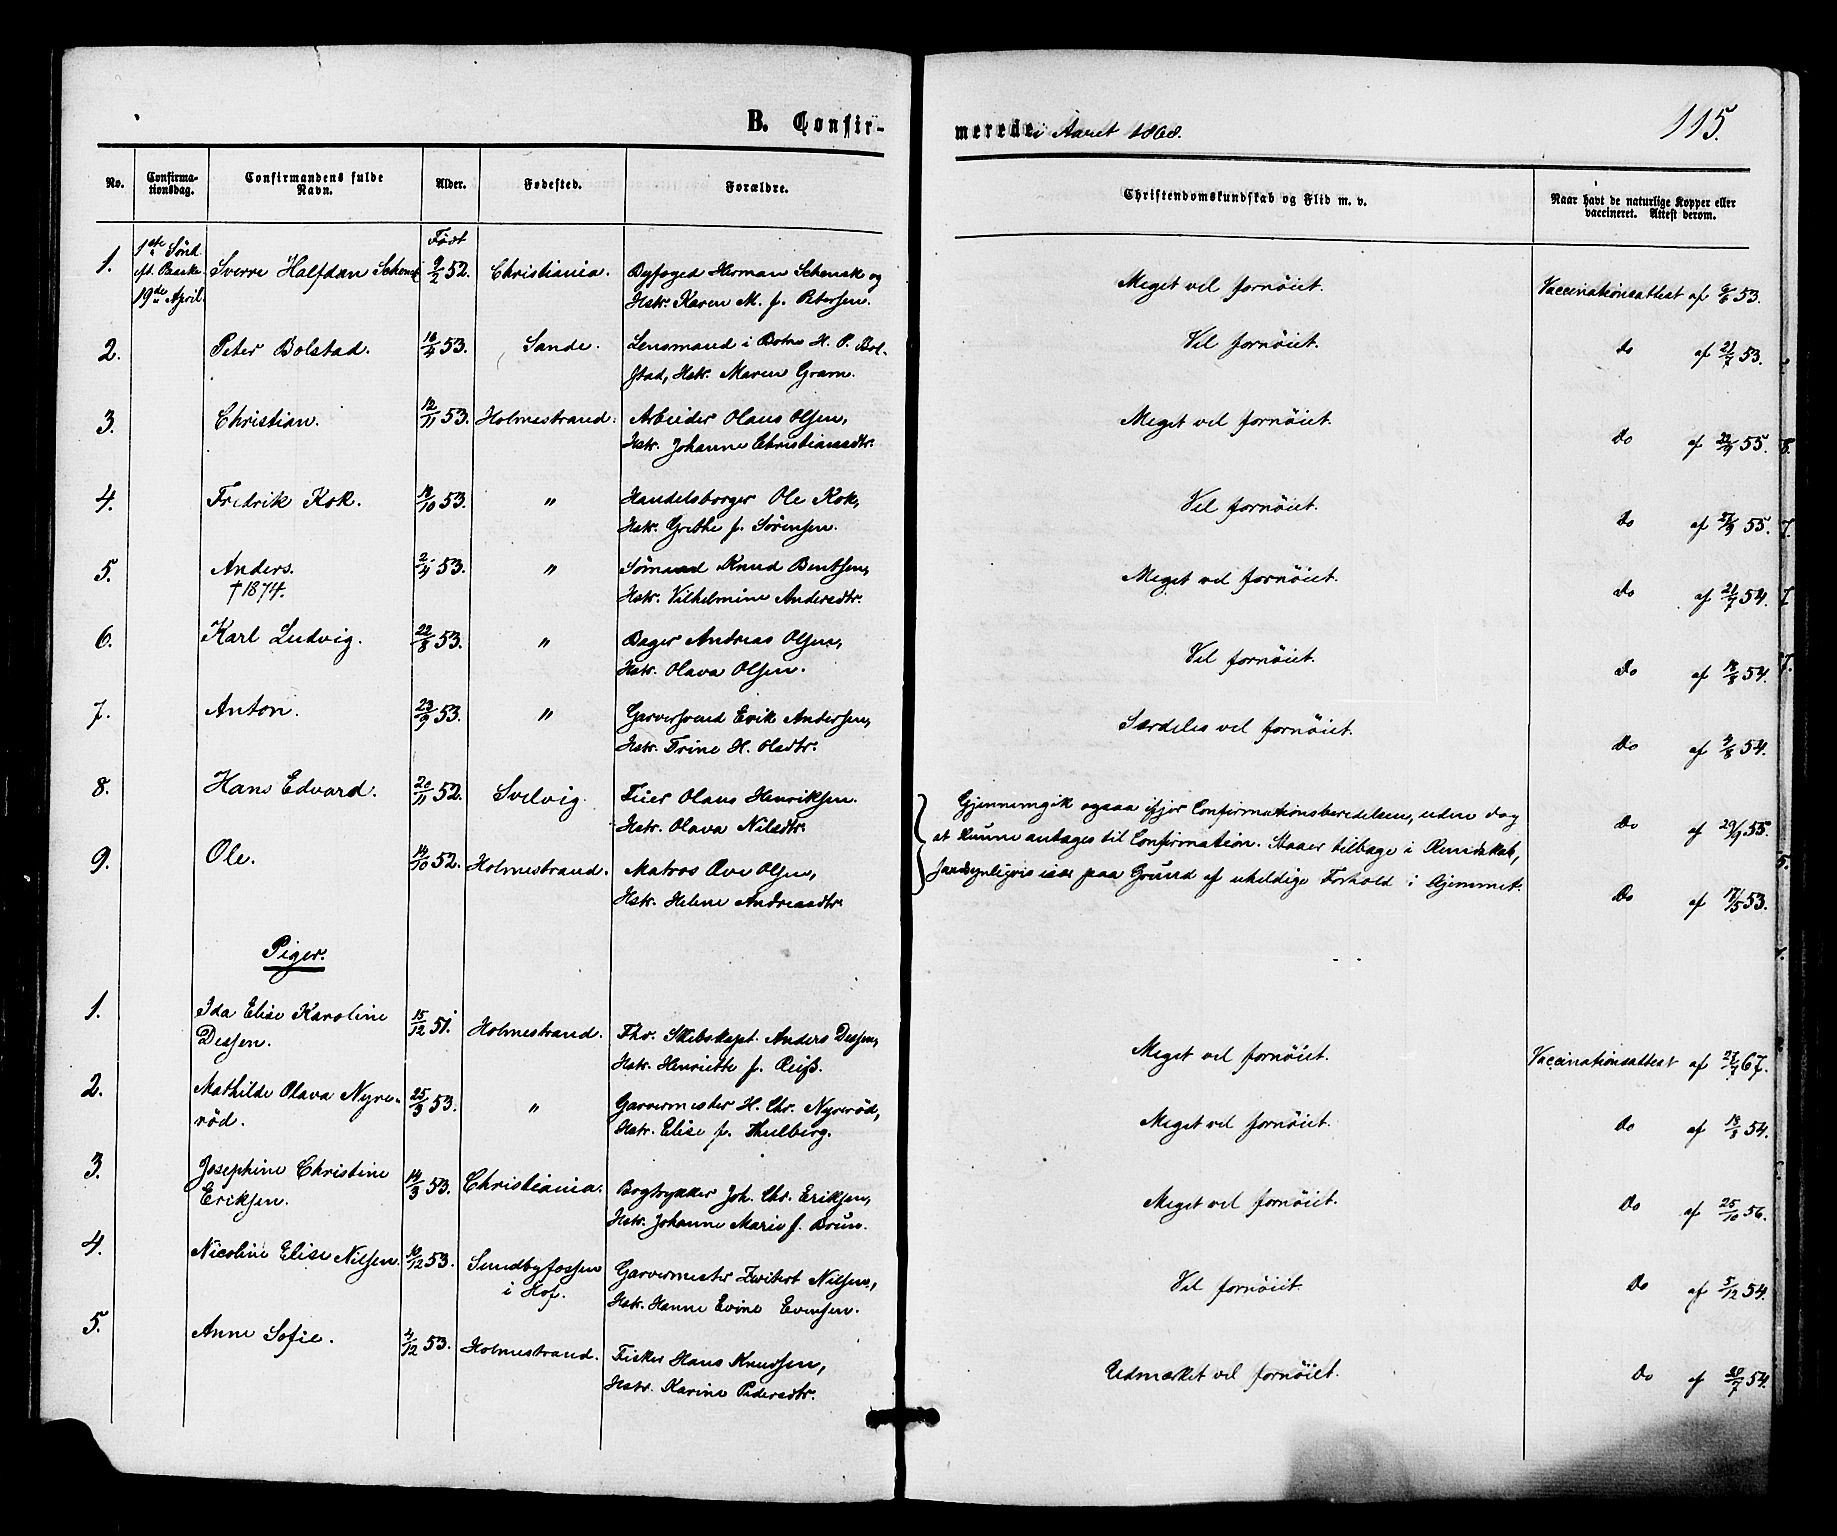 B. Confir-
merede i Aaret 1868.
115.
No.
Confirma-
tionsdag.
Confirmandens fulde
Navn.
Alder.
Fødested.
Forældre.
Christendomskundskab og Flid m. v.
Naar havt de naturlige Kopper eller
vaccineret. Attest derom.
Født
1. 1ste Sønd. Sverre Halfdan Schenck 9/2 52. Christiania. Byfoged Herman Schenck og Meget vel fornøiet. Vaccinationsattest af 9/6 53.
eft. Paaske
19de April. Hstr. Karen M. f. Petersen.
2. Peter Bolstad. 16/4 53. Sande. Lensmand i Botne H. P. Bol- Vel fornøiet. Do af 21/7 53.
stad, Hstr. Maren Gram.
3. Christian. 12/11 53. Holmestrand. Arbeider Olaus Olsen, Meget vel fornøiet. Do af 22/9 55.
Hstr. Johanne Christiansdtr.
4. Fredrik Kok. 18/10 53. " Handelsborger Ole Kok, Vel fornøiet. Do af 27/9 55.
Hstr. Grethe f. Sørensen.
5. Anders. 2/4 53. " Sømand Knud Bentsen, Meget vel fornøiet. Do af 21/7 54.
† 1874. Hstr. Vilhelmine Andersdtr.
6. Karl Ludvig. 22/8 53. " Bager Andreas Olsen, Vel fornøiet. Do af 18/8 54.
Hstr. Olava Olsen.
7. Anton. 23/9 53. " Garversvend Erik Andersen, Særdeles vel fornøiet. Do af 9/8 54.
Hstr. Trine H. Olsdtr.
8. Hans Edvard. 20/11 52. Svelvig. Fuer Olaus Henriksen. Gjennemgik ogsaa ifjor Confirmationsberedelsen, uden dog Do af 29/9 55.
Hstr. Olava Nilsdtr. at kunne antages til Confirmation. Staaer tilbage i Kundskab,
9. Ole. 14/10 52. Holmestrand. Matros Ove Olsen, sandsynligvis især paa Grund af uheldige Forhold i Hjemmet. Do af 17/5 53.
Hstr. Helene Andreasdtr.
Piger.
1. Ida Elise Karoline 15/12 51. Holmestrand. Fhv. Skibskapt. Anders Dessen, Meget vel fornøiet. Vaccinationsattest af 27/7 67.
Dessen. Hstr. Henriette f. Reiß.
2. Mathilde Olava Nyre- 25/3 53. " Garvermester H. Chr. Nyrerød, Meget vel fornøiet. Do af 18/8 54.
rød. Hstr. Elise f. Hulberg.
3. Josephine Christine 14/3 53. Christiania. Bogtrykker Joh. Chr. Eriksen, Meget vel fornøiet. Do af 25/10 56.
Eriksen. Hstr. Johanne Marie f. Brun.
4. Nicoline Elise Nilsen. 16/12 53. Sundbyfossen Garvermester Nilsen, Vel fornøiet. Do af 5/12 54.
i Hof. Hstr. Hanne Evine Evensen.
5. Anne Sofie. 4/12 53. Holmestrand. Fisker Hans Knudsen, Udmærket vel fornøiet. Do af 20/7 54.
Hstr. Karine Pedersdtr.